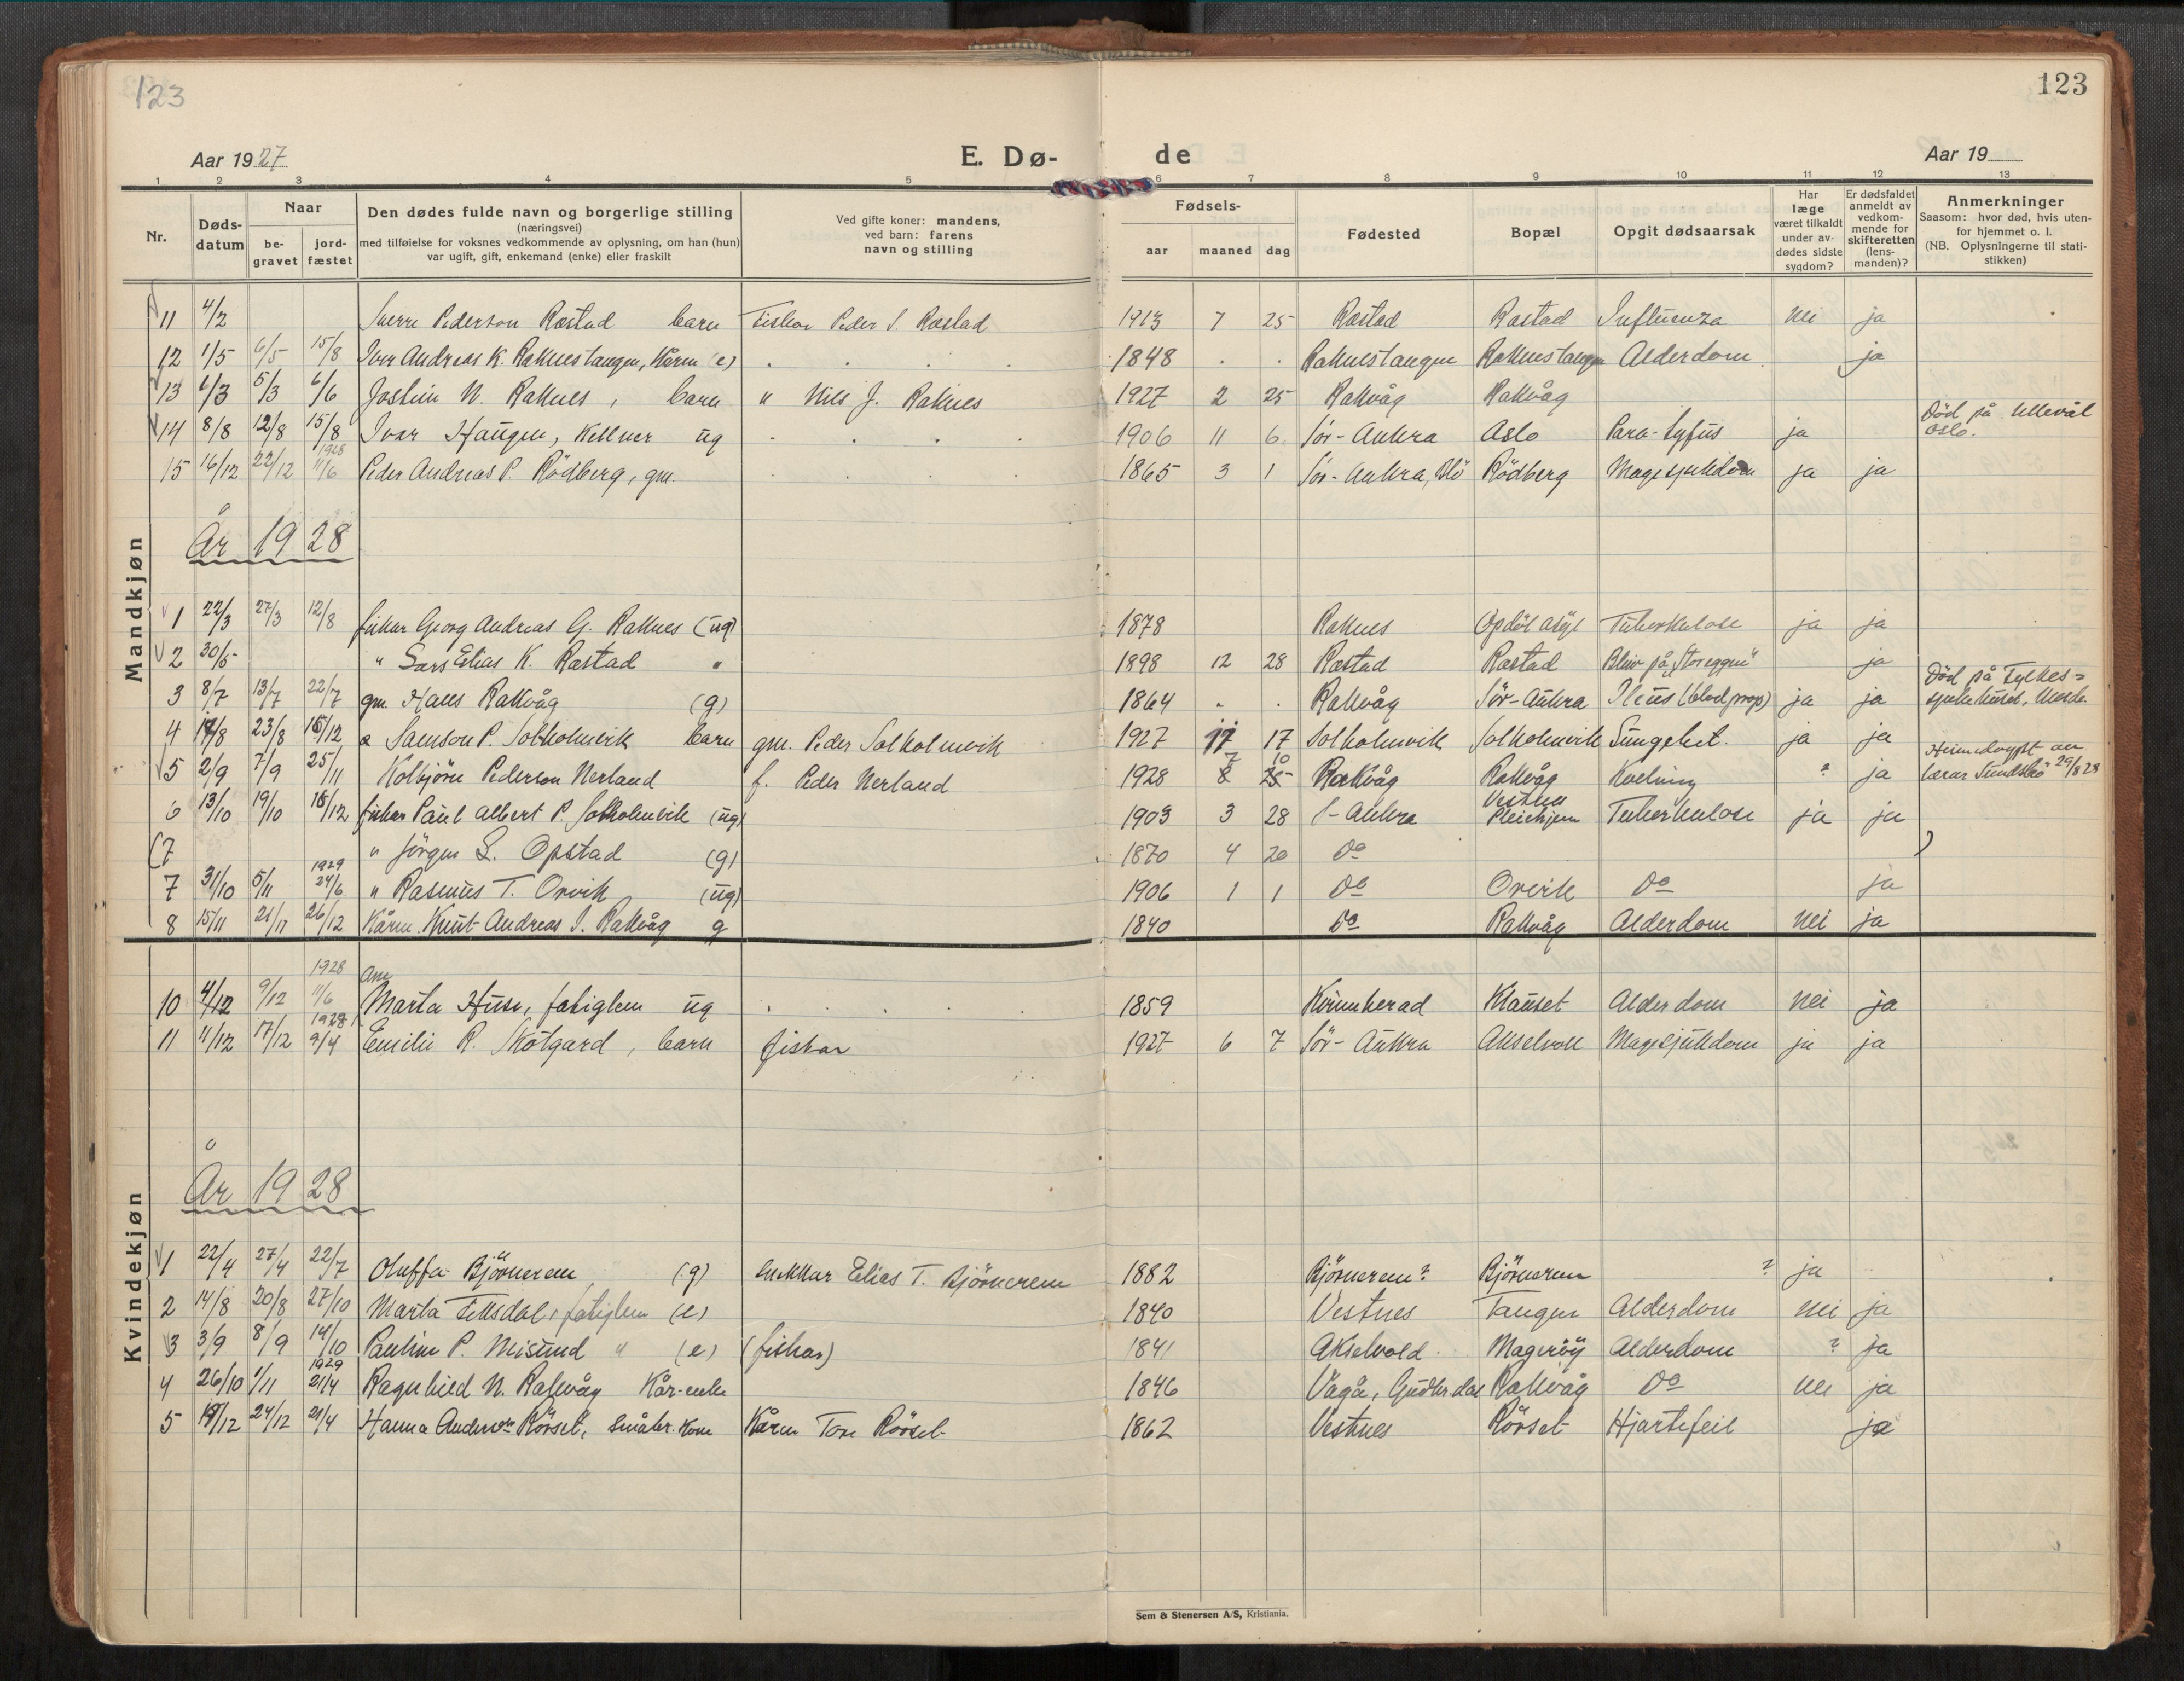 123
123
Aar 1927
E. Dø-
de
Aar 19
1 2 3 4 5 6 7 8 9 10 11 12 13
Nr.
Døds-datum
Naar
be-gravet
jord-fæstet
Den dødes fulde navn og borgerlige stilling
(næringsvei)
med tilføielse for voksnes vedkommende av oplysning, om han (hun)
var ugift, gift, enkemand (enke) eller fraskilt
Ved gifte koner: mandens,
ved barn: farens
navn og stilling
Fødsels-
aar maaned dag
Fødested
Bopæl
Opgit dødsaarsak
Har læge været tilkaldt under av-dødes sidste sygdom?
Er dødsfaldet anmeldt av vedkom-mende for skifteretten (lens-manden)?
Anmerkninger
Saasom: hvor død, hvis uten-
for hjemmet o. l.
(NB. Oplysningerne til stati-
stikken)
Mandkjøn
11 4/2 Sverre Pederson Røstad barn Fiskar Peder S. Røstad 1913 7 25 Røstad Røstad Influenza nei ja
12 1/5 6/5 15/8 Iver Andreas K. Raknestangen, Kårm (e) 1848 Raknestangen Raknestangen Alderdom ja
13 1/3 5/3 6/6 Jostein N. Raknes, barn " Nils J. Raknes 1927 2 25 Rakvåg Rakvåg
14 8/8 12/8 15/8 Ivar Haugen, Kellner ug 1906 11 6 Sör-Aukra Oslo Para-tyfus ja Död på Ullevål Oslo.
15 16/12 22/12 1928 11/6 Peder Andreas P. Rödberg, gm. 1865 3 1 Sör-Aukra, Rödberg Magesjukdom ja ja
År 1928
1 22/3 27/3 12/8 fiskar Georg Andreas G. Raknes (ug) 1878 Raknes Opdöl asyl Tuberkulose ja ja
2 30/5 " Lars Elias K. Røstad " 1898 12 28 Røstad Røstad Blev på "Storeggen" ja
3 8/7 13/7 22/7 gm. Hans Rakvåg (g) 1864 Rakvåg Sör-Aukra Ileus (blodprop) ja ja Död på Fylkes-sjukehuset, Molde.
4 17/8 23/8 16/12 Samson P. Solholmvik barn gm. Peder Solholmvik 1927 11 17 Solholmvik Solholmvik Lungebet. ja ja
5 2/9 7/9 25/11 Kolbjörn Pederson Nerland f. Peder Nerland 1928 8 7 25 10 Rakvåg Rakvåg Kvelning ? ja Heimedöypt av lærar 29/8 28
6 13/10 19/10 16/12 fiskar Paul Albert P. Solholmvik (ug) 1903 3 28 S-Aukra Vestnes Pleiehjem Tuberkulose ja ja
(7 " Jörgen L. Opstad (g) 1870 4 20 Do )
7 31/10 5/11 1929 24/6 " Rasmus T. Orvik (ug) 1906 1 1 Do Orvik Do ja
8 15/11 21/11 26/12 Kårm. Knut Andreas I. Rakvåg g 1840 Do Rakvåg Alderdom nei ja
Kvindekjøn
10 4/12 9/12 1928 11/6 Ane Marta Huse, fatiglem ug 1859 Kvinnherad Klauset Alderdom nei ja
11 11/12 17/12 1928 9/4 Emilie R. Skotgard, barn fiskar 1927 6 7 Sör-Aukra Akselvoll Magesjukdom ja ja
År 1928
1 22/4 27/4 22/7 Oluffa Björnerem (g) snikkar Elias T. Björnerem 1882 Björnerem? Björnerem ? ja
2 14/8 20/8 27/10 Marta Fiksdal, fatiglem (e) 1840 Vestnes Tangen Alderdom nei ja
3 3/9 8/9 14/10 Pauline P. Misund " (e) (fiskar) 1841 Akselvold Magerøy Alderdom ? ja
4 26/10 1/11 1929 21/4 Ragnhild N. Rakvåg Kår-enke 1846 Vågå, Gudbr.dal Rakvåg Do nei ja
5 19/12 24/12 21/4 Hanna Andersdtr Rörset, småbr. kone Kårm Tore Rörset 1862 Vestnes Rörset Hjartefeil ja
Sem & Stenersen A/S, Kristiania.